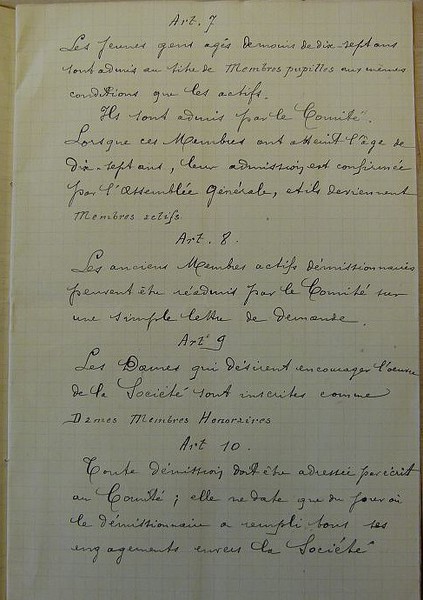 Art. 7
Les jeunes gens agés de moins de dix-sept ans
sont admis au titre de Membres pupilles aux mêmes
conditions que les actifs.
Ils sont admis par le Comité.
Lorsque ces Membres ont atteint l'âge de
dix-sept ans, leur admission est confirmée
par l'Assemblée Générale, et ils deviennent
Membres actifs
Art. 8.
Les anciens Membres actifs démissionnaires
peuvent être réadmis par le Comité sur
une simple lettre de demande.
Art 9
Les Dames qui désirent encourager l'oeuvre
de la Société sont inscrites comme
Dames Membres Honoraires
Art 10.
Toute démission doit être adressée par écrit
au Comité; elle ne date que du jour où
le démissionnaire a rempli tous ses
engagements envers la Société